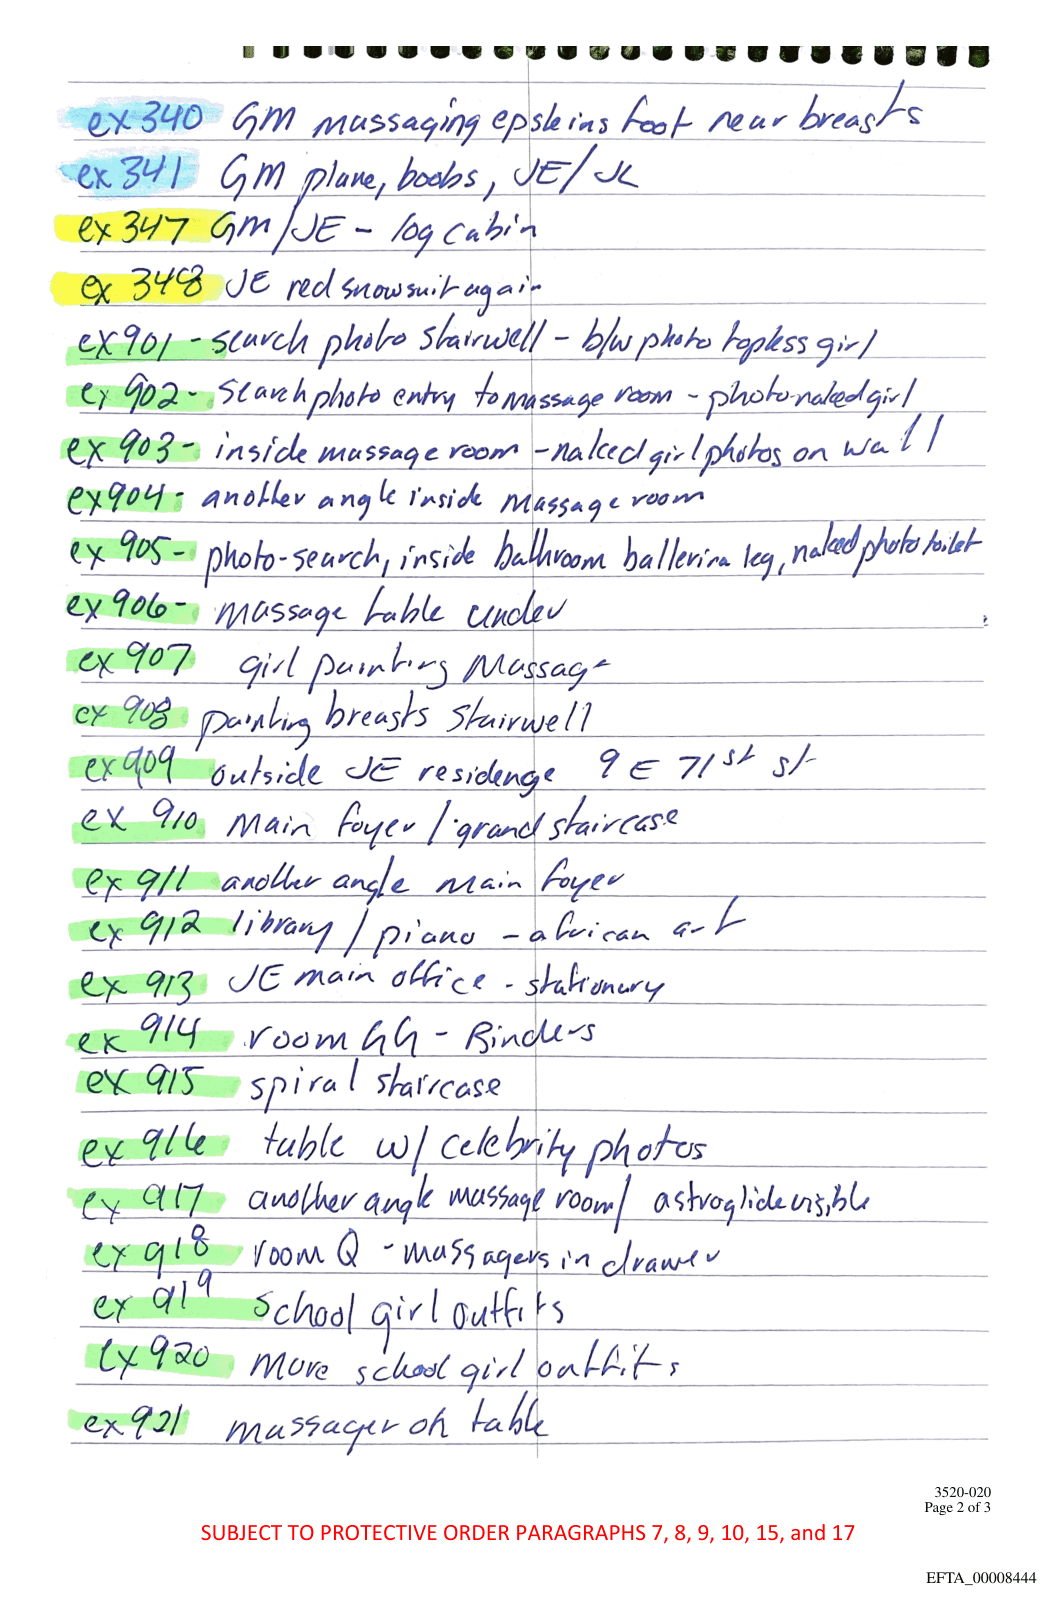 ex 340 GM massaging epsteins foot near breasts
ex 341 GM plane, boobs, JE/JL
ex 347 GM/JE - log cabin
ex 348 JE red snowsuit again
ex 901 - search photo stairwell - b/w photo topless girl
ex 902 - search photo entry to massage room - photo naked girl
ex 903 - inside massage room - naked girl photos on wall
ex 904 - another angle inside massage room
ex 905 - photo-search, inside bathroom ballerina leg, naked photo toilet
ex 906 - massage table under
ex 907 girl painting massage
ex 908 painting breasts stairwell
ex 909 outside JE residenge 9 E 71st st
ex 910 Main foyer / grand staircase
ex 911 another angle main foyer
ex 912 library / piano - african art
ex 913 JE main office - stationary
ex 914 room GG - Binders
ex 915 spiral staircase
ex 916 table w/ celebrity photos
ex 917 another angle massage room / astroglide visible
ex 918 room Q - massagers in drawer
ex 919 school girl outfits
ex 920 more school girl outfits
ex 921 massager on table
3520-020
Page 2 of 3
SUBJECT TO PROTECTIVE ORDER PARAGRAPHS 7, 8, 9, 10, 15, and 17
EFTA_00008444